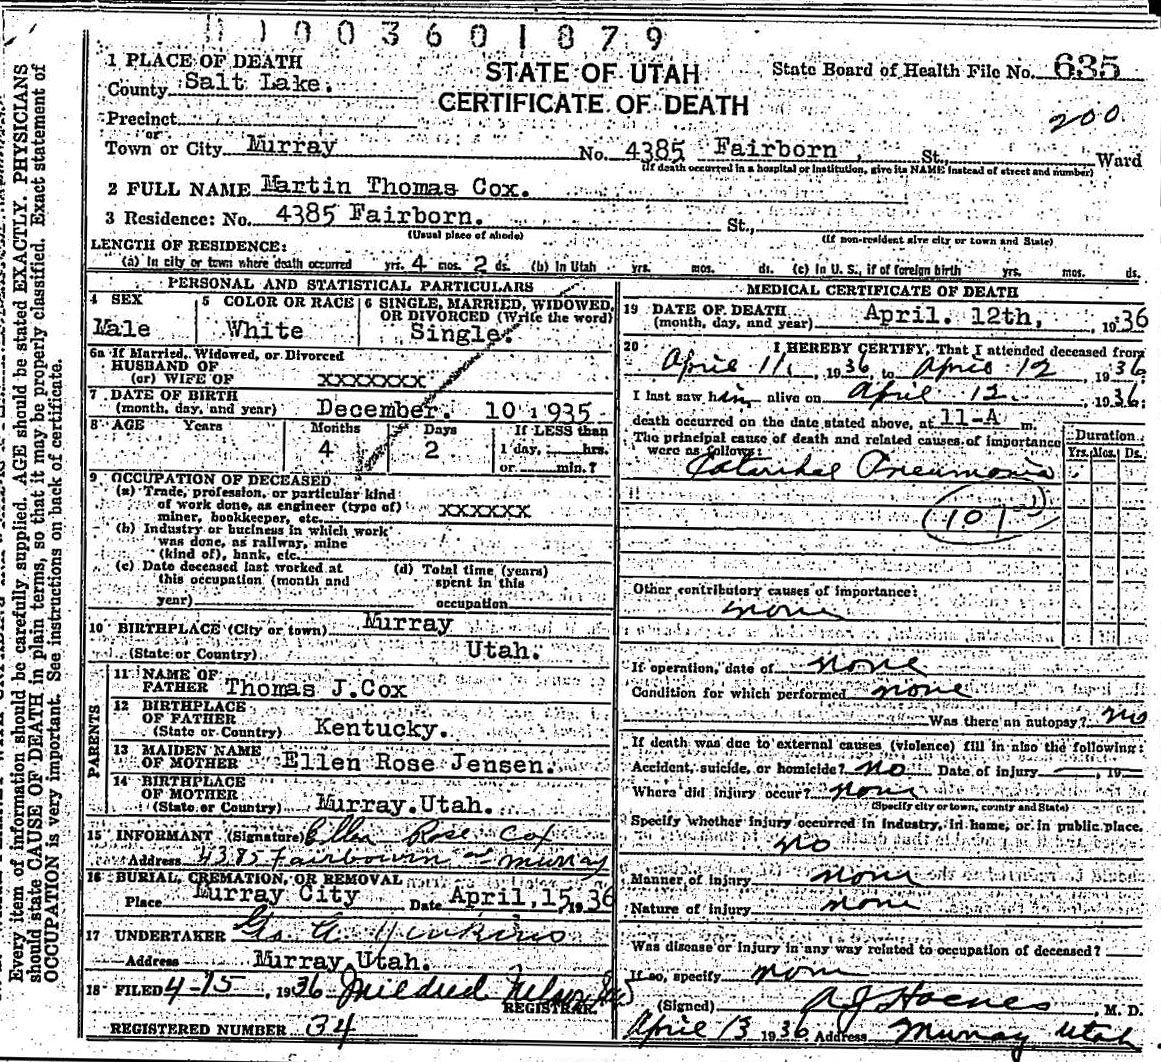 0 1 0 0 3 6 0 1 8 7 9
1 PLACE OF DEATH
County Salt Lake.
STATE OF UTAH
CERTIFICATE OF DEATH
State Board of Health File No. 635
200
Precinct
or
Town or City Murray No. 4385 Fairborn , St., Ward
(If death occurred in a hospital or institution, give its NAME instead of street and number)
2 FULL NAME Martin Thomas Cox.
3 Residence: No. 4385 Fairborn. St.,
(Usual place of abode) (If non-resident give city or town and State)
LENGTH OF RESIDENCE:
(a) In city or town where death occurred yrs. 4 mos. 2 ds. (b) In Utah yrs. mos. ds. (c) In U. S., if of foreign birth yrs. mos. ds.
PERSONAL AND STATISTICAL PARTICULARS
4 SEX
Male
5 COLOR OR RACE
White
6 SINGLE, MARRIED, WIDOWED,
OR DIVORCED (Write the word)
Single.
6a If Married, Widowed, or Divorced
HUSBAND OF
(or) WIFE OF xxxxxxx
7 DATE OF BIRTH
(month, day, and year) December. 10 1935
8 AGE Years Months Days If LESS than
4 2 1 day, hrs.
or min.?
9 OCCUPATION OF DECEASED
(a) Trade, profession, or particular kind
of work done, as engineer (type of)
miner, bookkeeper, etc. xxxxxx
(b) Industry or business in which work
was done, as railway, mine
(kind of), bank, etc.
(c) Date deceased last worked at
this occupation (month and
year)
(d) Total time (years)
spent in this
occupation
10 BIRTHPLACE (City or town) Murray
(State or Country) Utah.
PARENTS
11 NAME OF
FATHER Thomas J.Cox
12 BIRTHPLACE
OF FATHER
(State or Country) Kentucky.
13 MAIDEN NAME
OF MOTHER Ellen Rose Jensen.
14 BIRTHPLACE
OF MOTHER
(State or Country) Murray.Utah.
15 INFORMANT (Signature) Ellen Rose Cox
Address 4385 Fairbourn at Murray
16 BURIAL, CREMATION, OR REMOVAL
Place Murray City Date April,15, 1936
17 UNDERTAKER Geo A Jenkins
Address Murray Utah.
18 FILED 4-15, 1936 Mildred
REGISTRAR.
REGISTERED NUMBER 34
MEDICAL CERTIFICATE OF DEATH
19 DATE OF DEATH
(month, day, and year) April. 12th, , 1936
20 I HEREBY CERTIFY, That I attended deceased from
April 11, 1936, to April 12, 1936
I last saw him alive on April 12, 1936;
death occurred on the date stated above, at 11-A m.
The principal cause of death and related causes of importance
were as follows:
Duration
Yrs. Mos. Ds.
Catarrhal Pneumonia
101
Other contributory causes of importance:
none
If operation, date of none
Condition for which performed none
Was there an autopsy? no
If death was due to external causes (violence) fill in also the following:
Accident, suicide, or homicide? no Date of injury , 19
Where did injury occur? none
(Specify city or town, county and State)
Specify whether injury occurred in industry, in home, or in public place.
no
Manner of injury none
Nature of injury none
Was disease or injury in any way related to occupation of deceased?
If so, specify none
(Signed) , M. D.
April 13 1936 Address Murray Utah
Every item of information should be carefully supplied. AGE should be stated EXACTLY. PHYSICIANS
should state CAUSE OF DEATH in plain terms, so that it may be properly classified. Exact statement of
OCCUPATION is very important. See instructions on back of certificate.